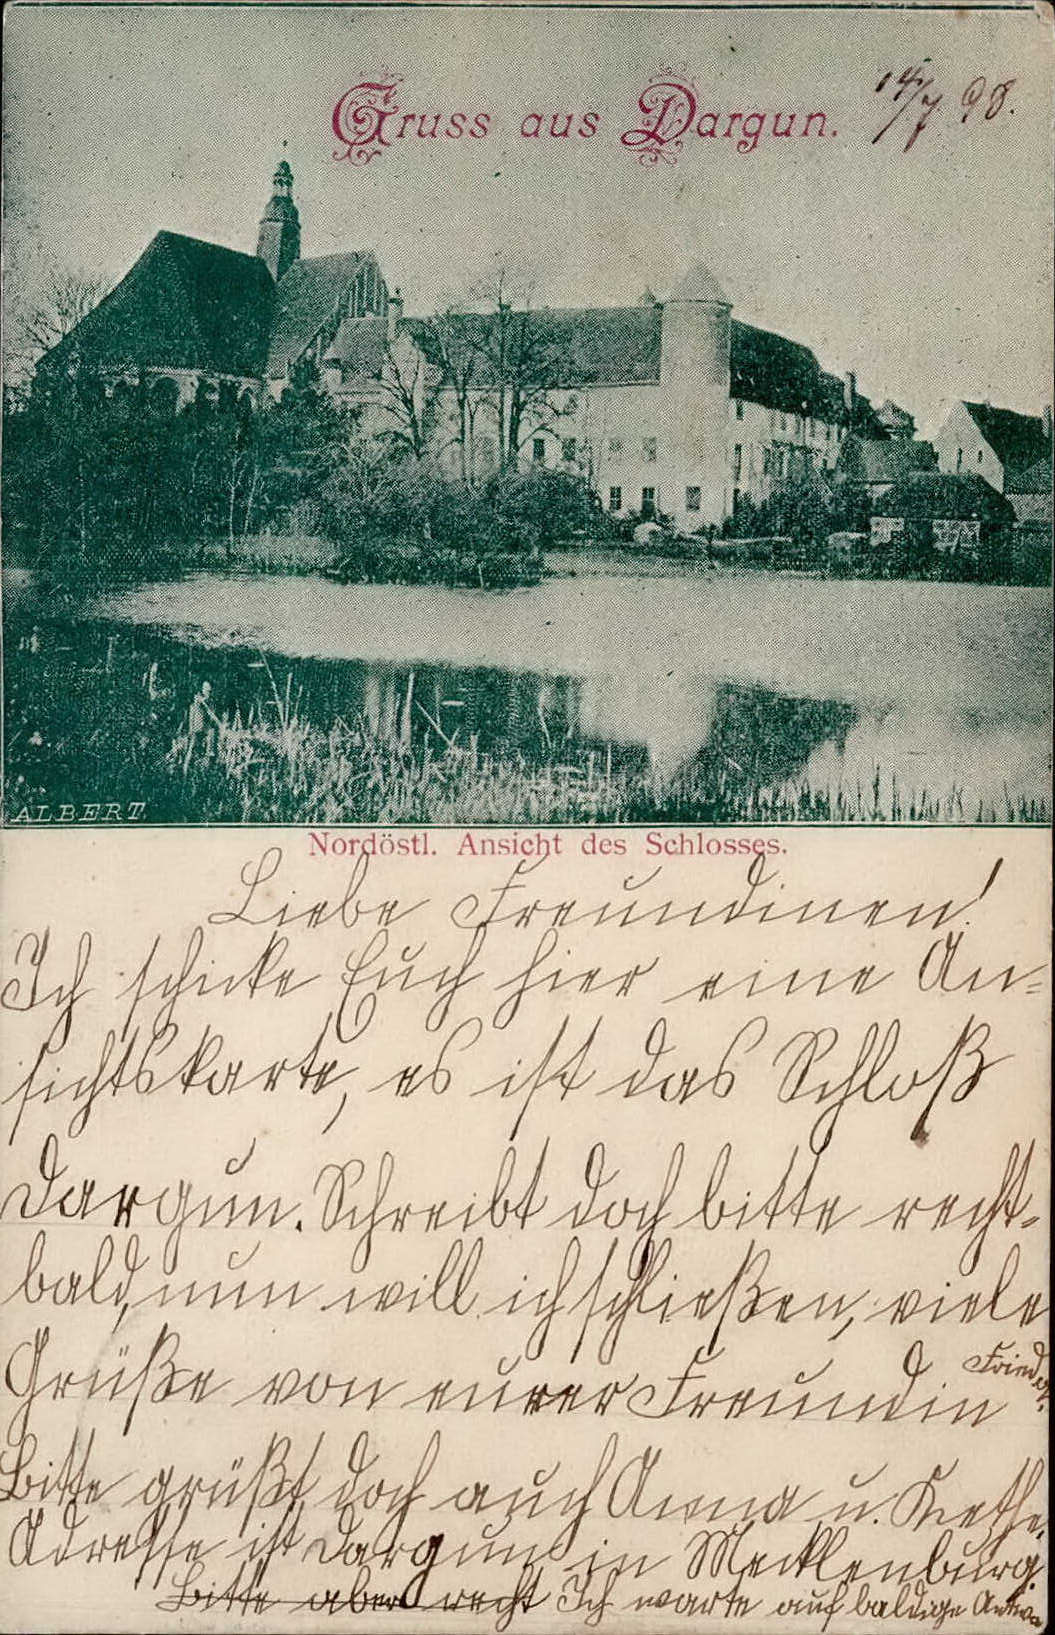 Gruss aus Dargun.
14/7 98.
ALBERT.
Nordöstl. Ansicht des Schlosses.
Liebe Freundinen!
Ich schicke Euch hier eine An-
sichtskarte, es ist das Schloß
Dargun. Schreibt doch bitte recht
bald, nun will ich schließen, viele
Grüße von eurer Freundin
Bitte grüßt doch auch Anna u. Kethe.
Adresse ist Dargun in Mecklenburg.
Bitte aber recht Ich warte auf baldige